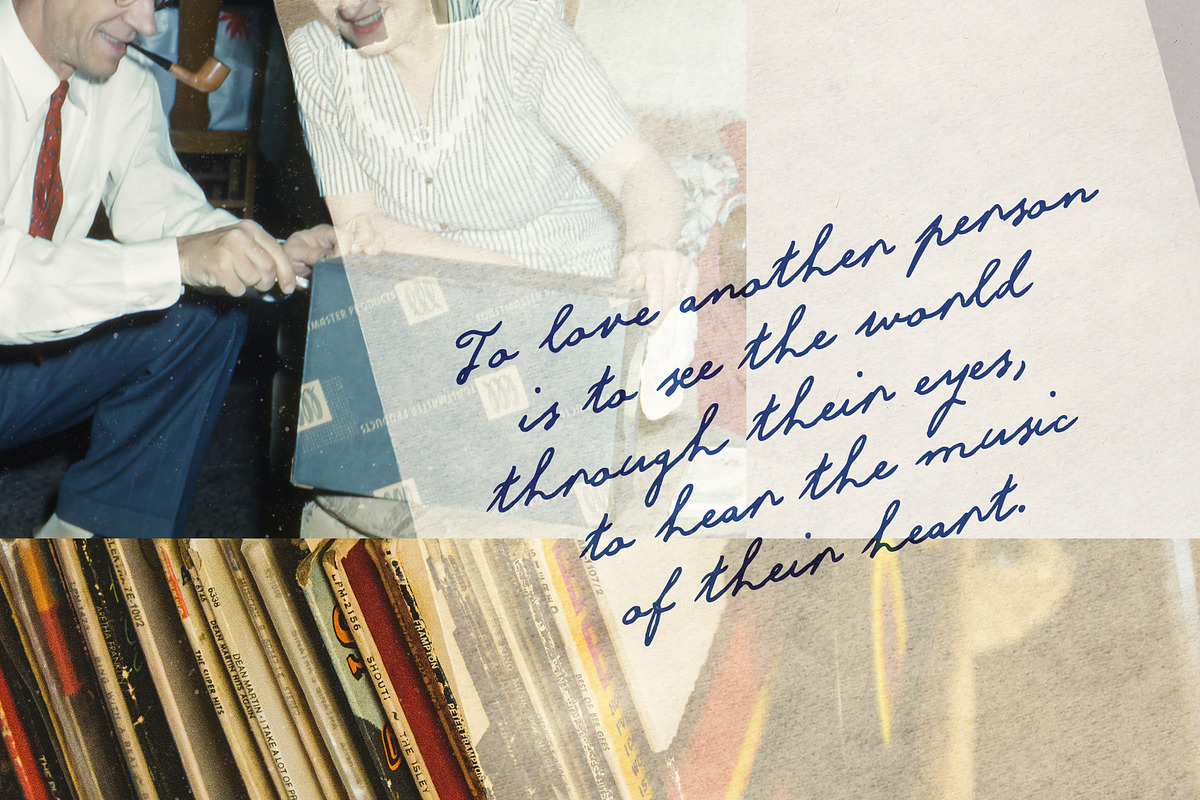 MASTER PRODUCTS
TOASTMASTER
TOASTMASTER PRODUCTS
To love another person
is to see the world
through their eyes,
to hear the music
of their heart.
7E-1002
ARETHA FRANKLIN
6338
DEAN MARTIN HITS AGAIN
THE SUPER HITS
DEAN MARTIN • I TAKE A LOT OF PR
LPM-2156
SHOUT! ~ THE ISLEY
FRAMPTON
PETER FRAMPTON
107/2
BEST OF BEE GEES